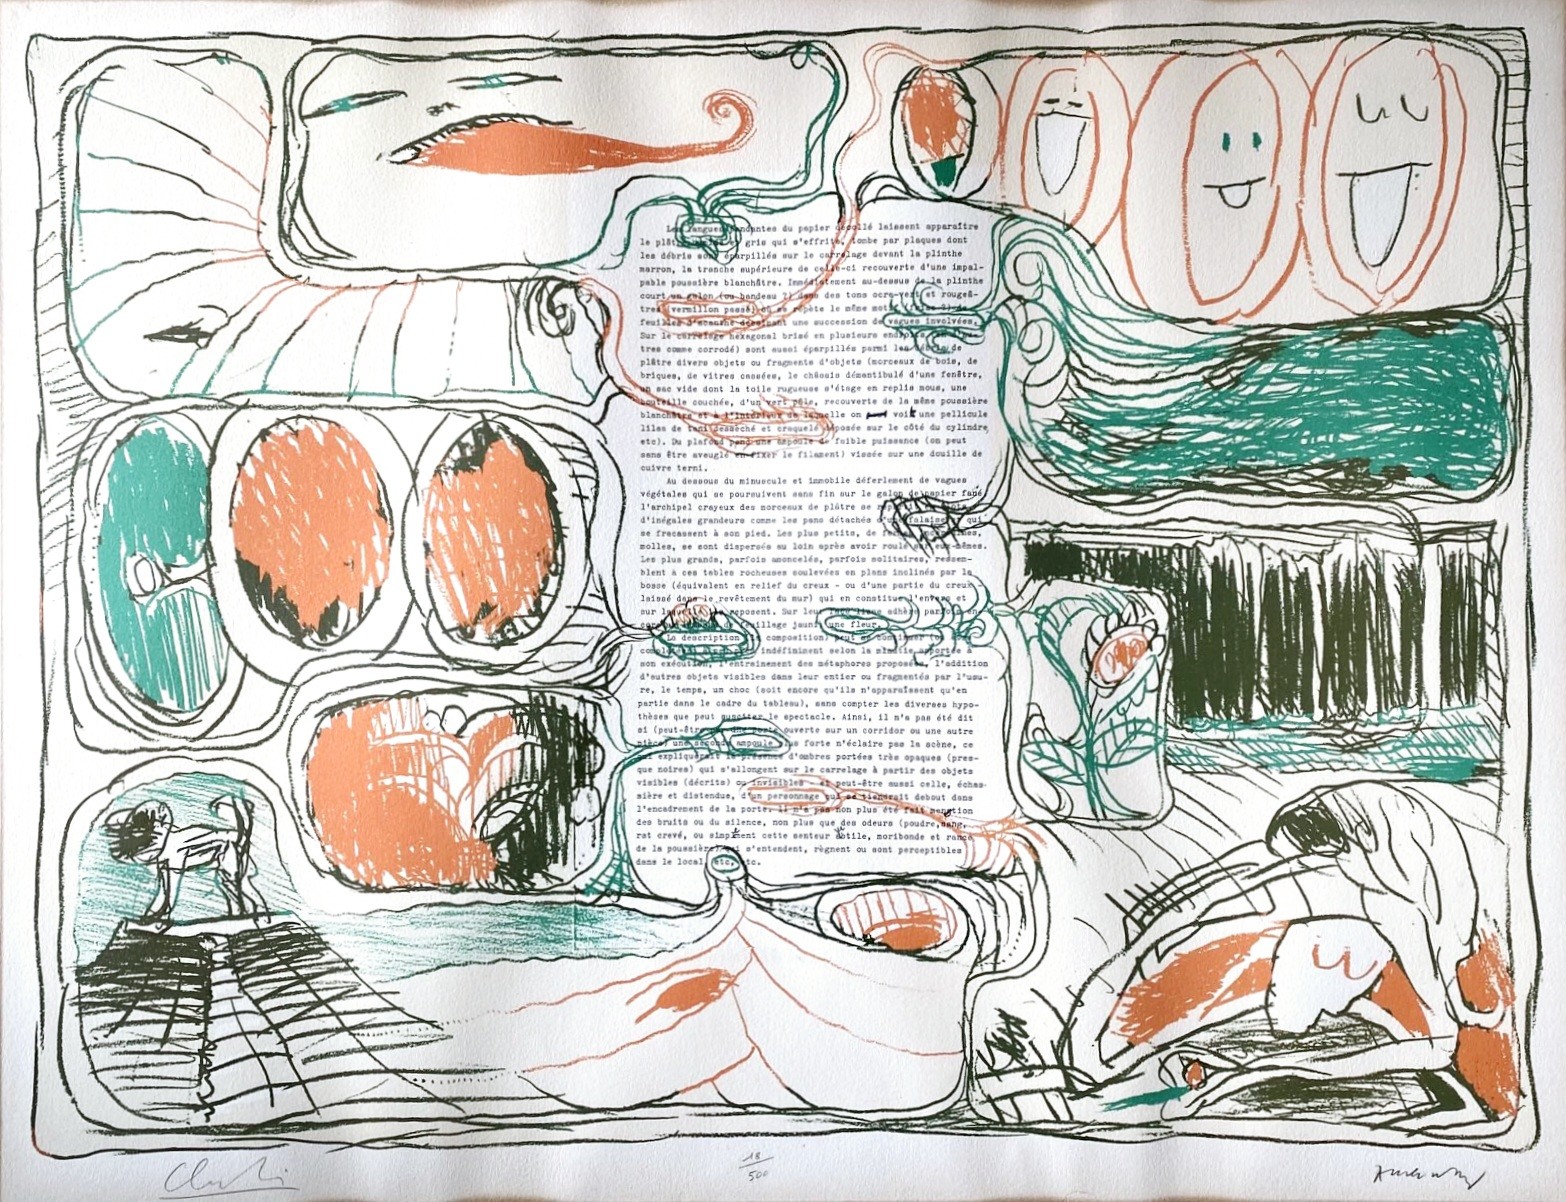 Les langues pendantes du papier décollé laissent apparaître
le plâtre gris qui s'effrite, tombe par plaques dont
les débris sont éparpillés sur le carrelage devant la plinthe
marron, la tranche supérieure de celle-ci recouverte d'une impal-
pable poussière blanchâtre. Immédiatement au-dessus de la plinthe
court un galon (ou bandeau ?) dans des tons ocre-vert et rougeâ-
tres (vermillon passé) où se répète le même motif
feuilles d'acanthe dessinant une succession de vagues involvées.
Sur le carrelage hexagonal brisé en plusieurs endroits
tres comme corrodé) sont aussi éparpillés parmi les débris de
plâtre divers objets ou fragments d'objets (morceaux de bois, de
briques, de vitres cassées, le châssis démantibulé d'une fenêtre,
un sac vide dont la toile rugueuse s'étage en replis mous, une
bouteille couchée, d'un vert pâle, recouverte de la même poussière
blanchâtre et à l'intérieur de laquelle on voit une pellicule
lilas de tani desséché et craquelé déposée sur le côté du cylindre,
etc). Du plafond pend une ampoule de faible puissance (on peut
sans être aveuglé en fixer le filament) vissée sur une douille de
cuivre terni.
Au dessous du minuscule et immobile déferlement de vagues
végétales qui se poursuivent sans fin sur le galon de papier fané
l'archipel crayeux des morceaux de plâtre se
d'inégales grandeurs comme les pans détachés d'une falaise qui
se fracassent à son pied. Les plus petits, de
molles, se sont dispersés au loin après avoir roulé sur eux-mêmes.
Les plus grands, parfois amoncelés, parfois solitaires, ressem-
blent à ces tables rocheuses soulevées en plans inclinés par la
bosse (équivalent en relief du creux - ou d'une partie du creux -
laissé dans le revêtement du mur) qui en constitue l'envers et
sur laquelle reposent. Sur leur face lisse adhère parfois en-
core de feuillage jauni, une fleur.
La description (la composition) peut se continuer (ou
indéfiniment selon la minutie apportée à
son exécution, l'entraînement des métaphores proposées, l'addition
d'autres objets visibles dans leur entier ou fragmentés par l'usu-
re, le temps, un choc (soit encore qu'ils n'apparaîssent qu'en
partie dans le cadre du tableau), sans compter les diverses hypo-
thèses que peut susciter le spectacle. Ainsi, il n'a pas été dit
si (peut-être par une porte ouverte sur un corridor ou une autre
pièce) une seconde ampoule plus forte n'éclaire pas la scène, ce
qui expliquerait la présence d'ombres portées très opaques (pres-
que noires) qui s'allongent sur le carrelage à partir des objets
visibles (décrits) ou invisibles - et peut-être aussi celle, échas-
sière et distendue, d'un personnage qui se tiendrait debout dans
l'encadrement de la porte. Il n'a pas non plus été fait mention
des bruits ou du silence, non plus que des odeurs (poudre, sang,
rat crevé, ou simplement cette senteur subtile, moribonde et rance
de la poussière) qui s'entendent, règnent ou sont perceptibles
dans le local, etc, etc.
18/500